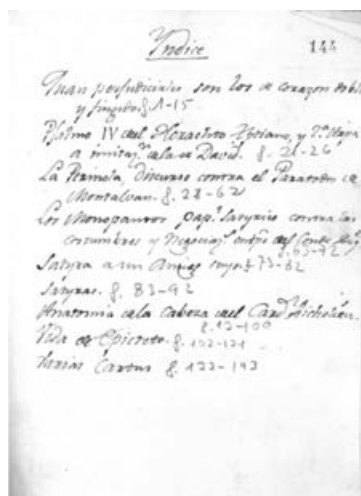 Yndice
144
Quan perjudiciales son los de corazon doble
y fingido f. 1-15
Psalmo IV del Heraclito Xptiano, y 2.ª Harpa
a imitaz.n de la de David. f. 21-26
La Perinola, Discurso contra el Paratodos de
Montalvan. f. 28-62
Los Monopantos pap.l Satyrico contra las
costumbres y Negociaz.
f. 63-72
Satyra a un Amigo suyo f. 73-82
Satyras. f. 83-92
Anatomia de la Cabeza del Card.l Richelieu.
-100
Vida de Epicteto. f. 102-121
Varias Cartas f. 122-143